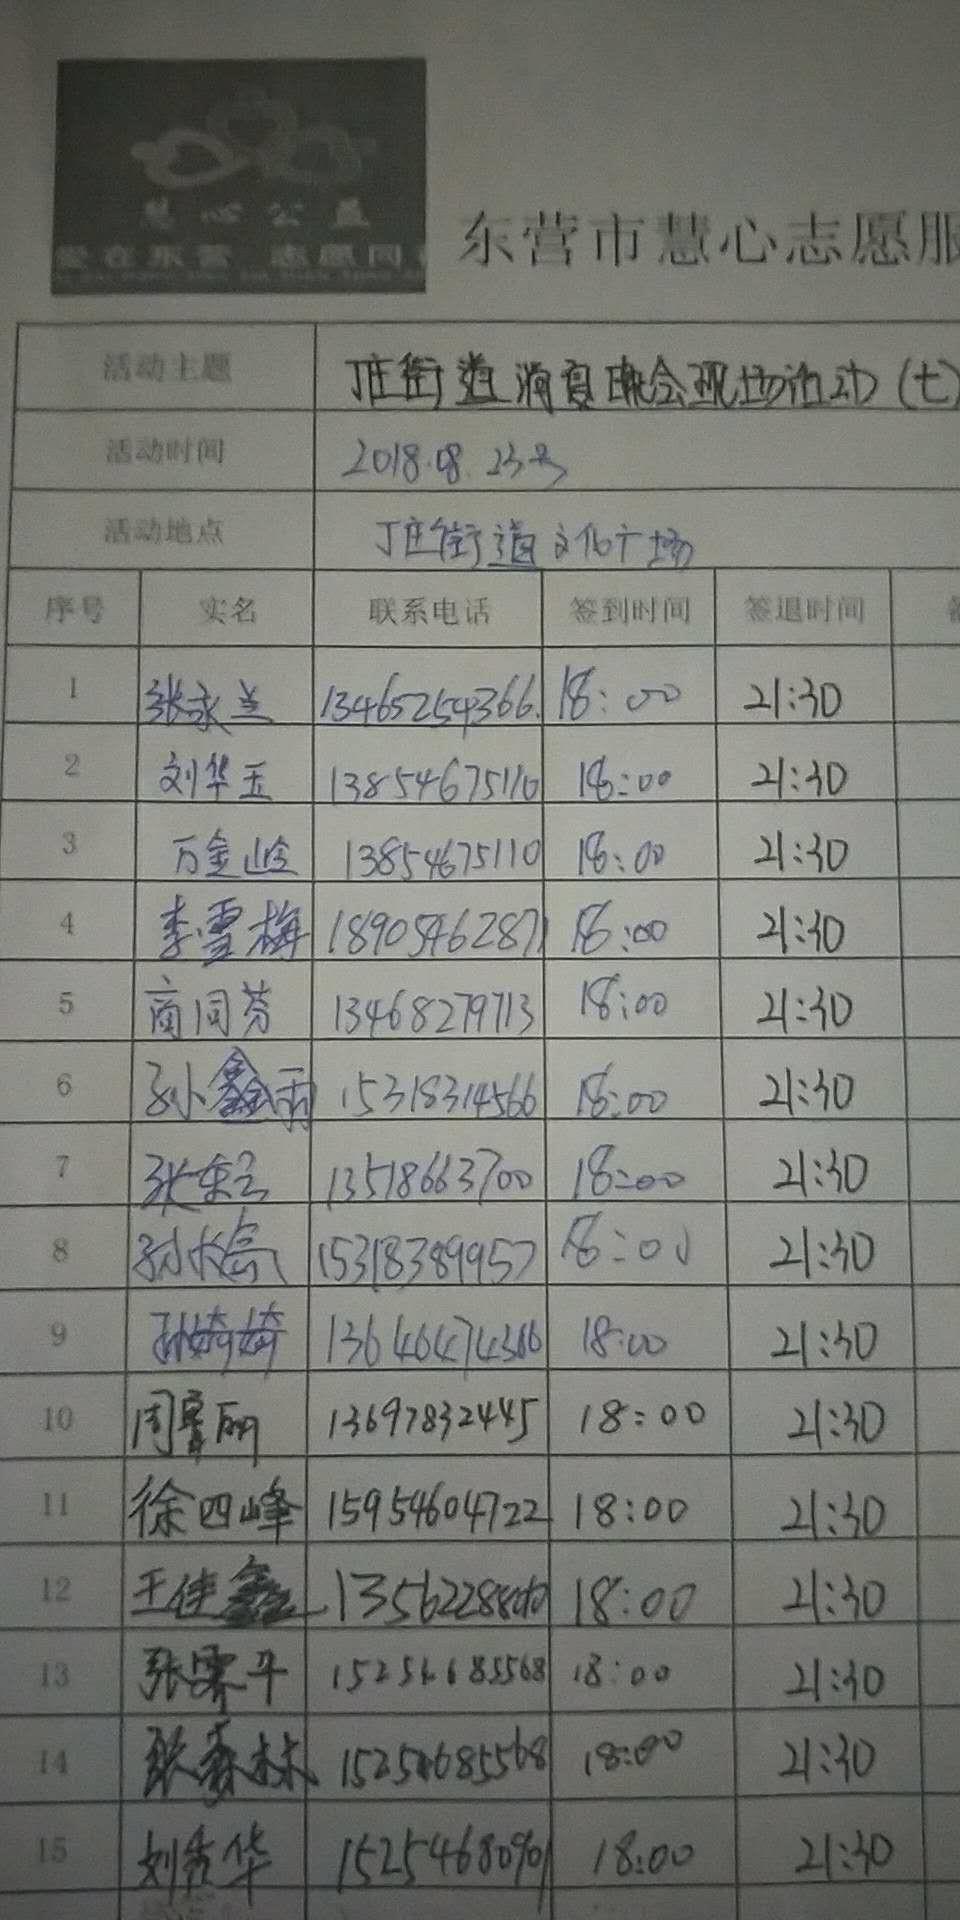 慧心公益
爱在东营 志愿同
东营市慧心志愿服
活动主题 丁庄街道消夏晚会现场活动(七)
活动时间 2018.08.23号
活动地点 丁庄街道文化广场
序号 实名 联系电话 签到时间 签退时间
1 张永兰 13465254366. 18:00 21:30
2 刘华玉 13854675110 18:00 21:30
3 万金岭 13854675110 18:00 21:30
4 李雪梅 18905462871 18:00 21:30
5 商同芬 13468279713 18:00 21:30
6 孙鑫雨 15318314566 18:00 21:30
7 13518663700 18:00 21:30
8 孙长亮 15318389957 18:00 21:30
9 孙婷婷 18:00 21:30
10 13697832445 18:00 21:30
11 徐四峰 15954604722 18:00 21:30
12 王佳鑫 18:00 21:30
13 15254685568 18:00 21:30
14 张森林 15254685568 18:00 21:30
15 刘秀华 18:00 21:30